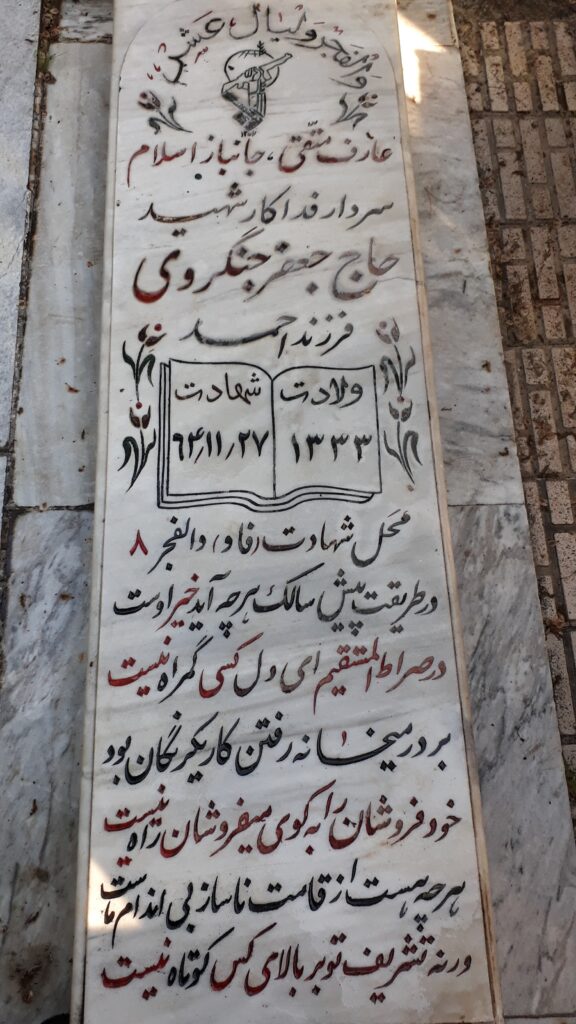 والفجر ولیال عشر
عارف متّقی، جانباز اسلام
سردار فداکار شهید
حاج جعفر جنگروی
فرزند احمد
ولادت
۱۳۳۳
شهادت
۶۴/۱۱/۲۷
محل شهادت (فاو) والفجر ۸
در طریقت پیش سالک هرچه آید خیر اوست
در صراط المستقیم ای دل کسی گمراه نیست
بر در میخانه رفتن کار یکرنگان بود
خود فروشان را به کوی میفروشان راه نیست
هرچه هست از قامت ناساز بی اندام ماست
ورنه تشریف تو بر بالای کس کوتاه نیست